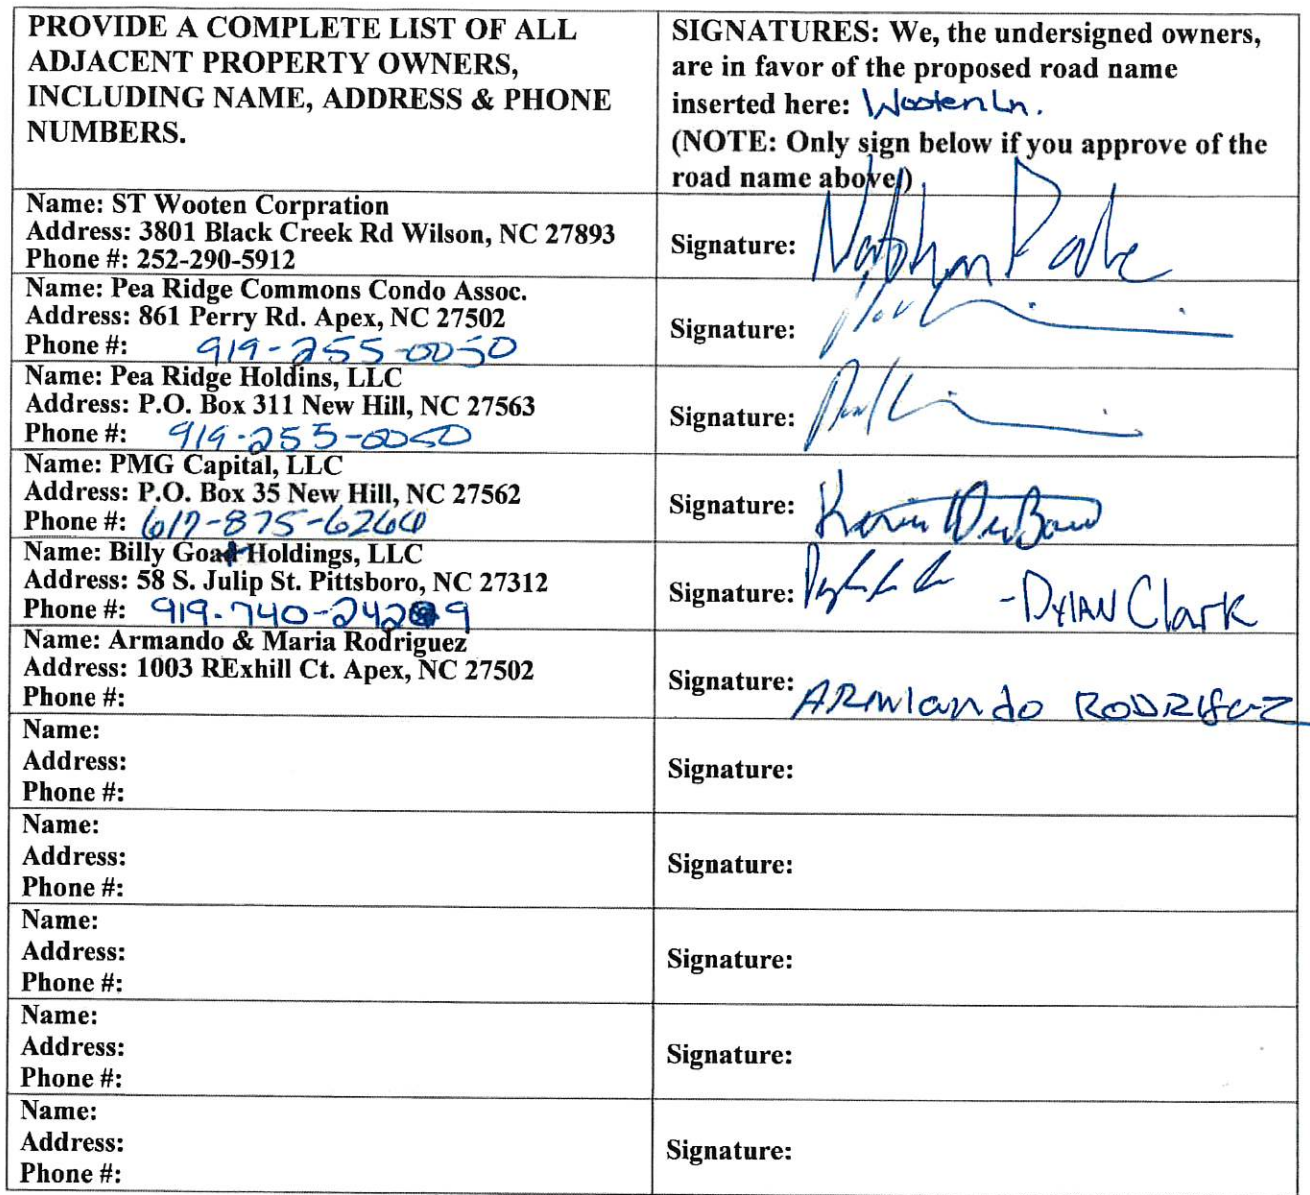 PROVIDE A COMPLETE LIST OF ALL
ADJACENT PROPERTY OWNERS,
INCLUDING NAME, ADDRESS & PHONE
NUMBERS.
SIGNATURES: We, the undersigned owners,
are in favor of the proposed road name
inserted here: Wooten Ln.
(NOTE: Only sign below if you approve of the
road name above)
Name: ST Wooten Corpration
Address: 3801 Black Creek Rd Wilson, NC 27893
Phone #: 252-290-5912
Signature:
Name: Pea Ridge Commons Condo Assoc.
Address: 861 Perry Rd. Apex, NC 27502
Phone #: 919-255-0050
Signature:
Name: Pea Ridge Holdins, LLC
Address: P.O. Box 311 New Hill, NC 27563
Phone #: 919-255-0050
Signature:
Name: PMG Capital, LLC
Address: P.O. Box 35 New Hill, NC 27562
Phone #:
Signature:
Name: Billy Goat Holdings, LLC
Address: 58 S. Julip St. Pittsboro, NC 27312
Phone #: 919-740-2429
Signature: -Dylan Clark
Name: Armando & Maria Rodriguez
Address: 1003 RExhill Ct. Apex, NC 27502
Phone #:
Signature: ARMANDO
Name:
Address:
Phone #:
Signature:
Name:
Address:
Phone #:
Signature:
Name:
Address:
Phone #:
Signature:
Name:
Address:
Phone #:
Signature:
Name:
Address:
Phone #:
Signature: